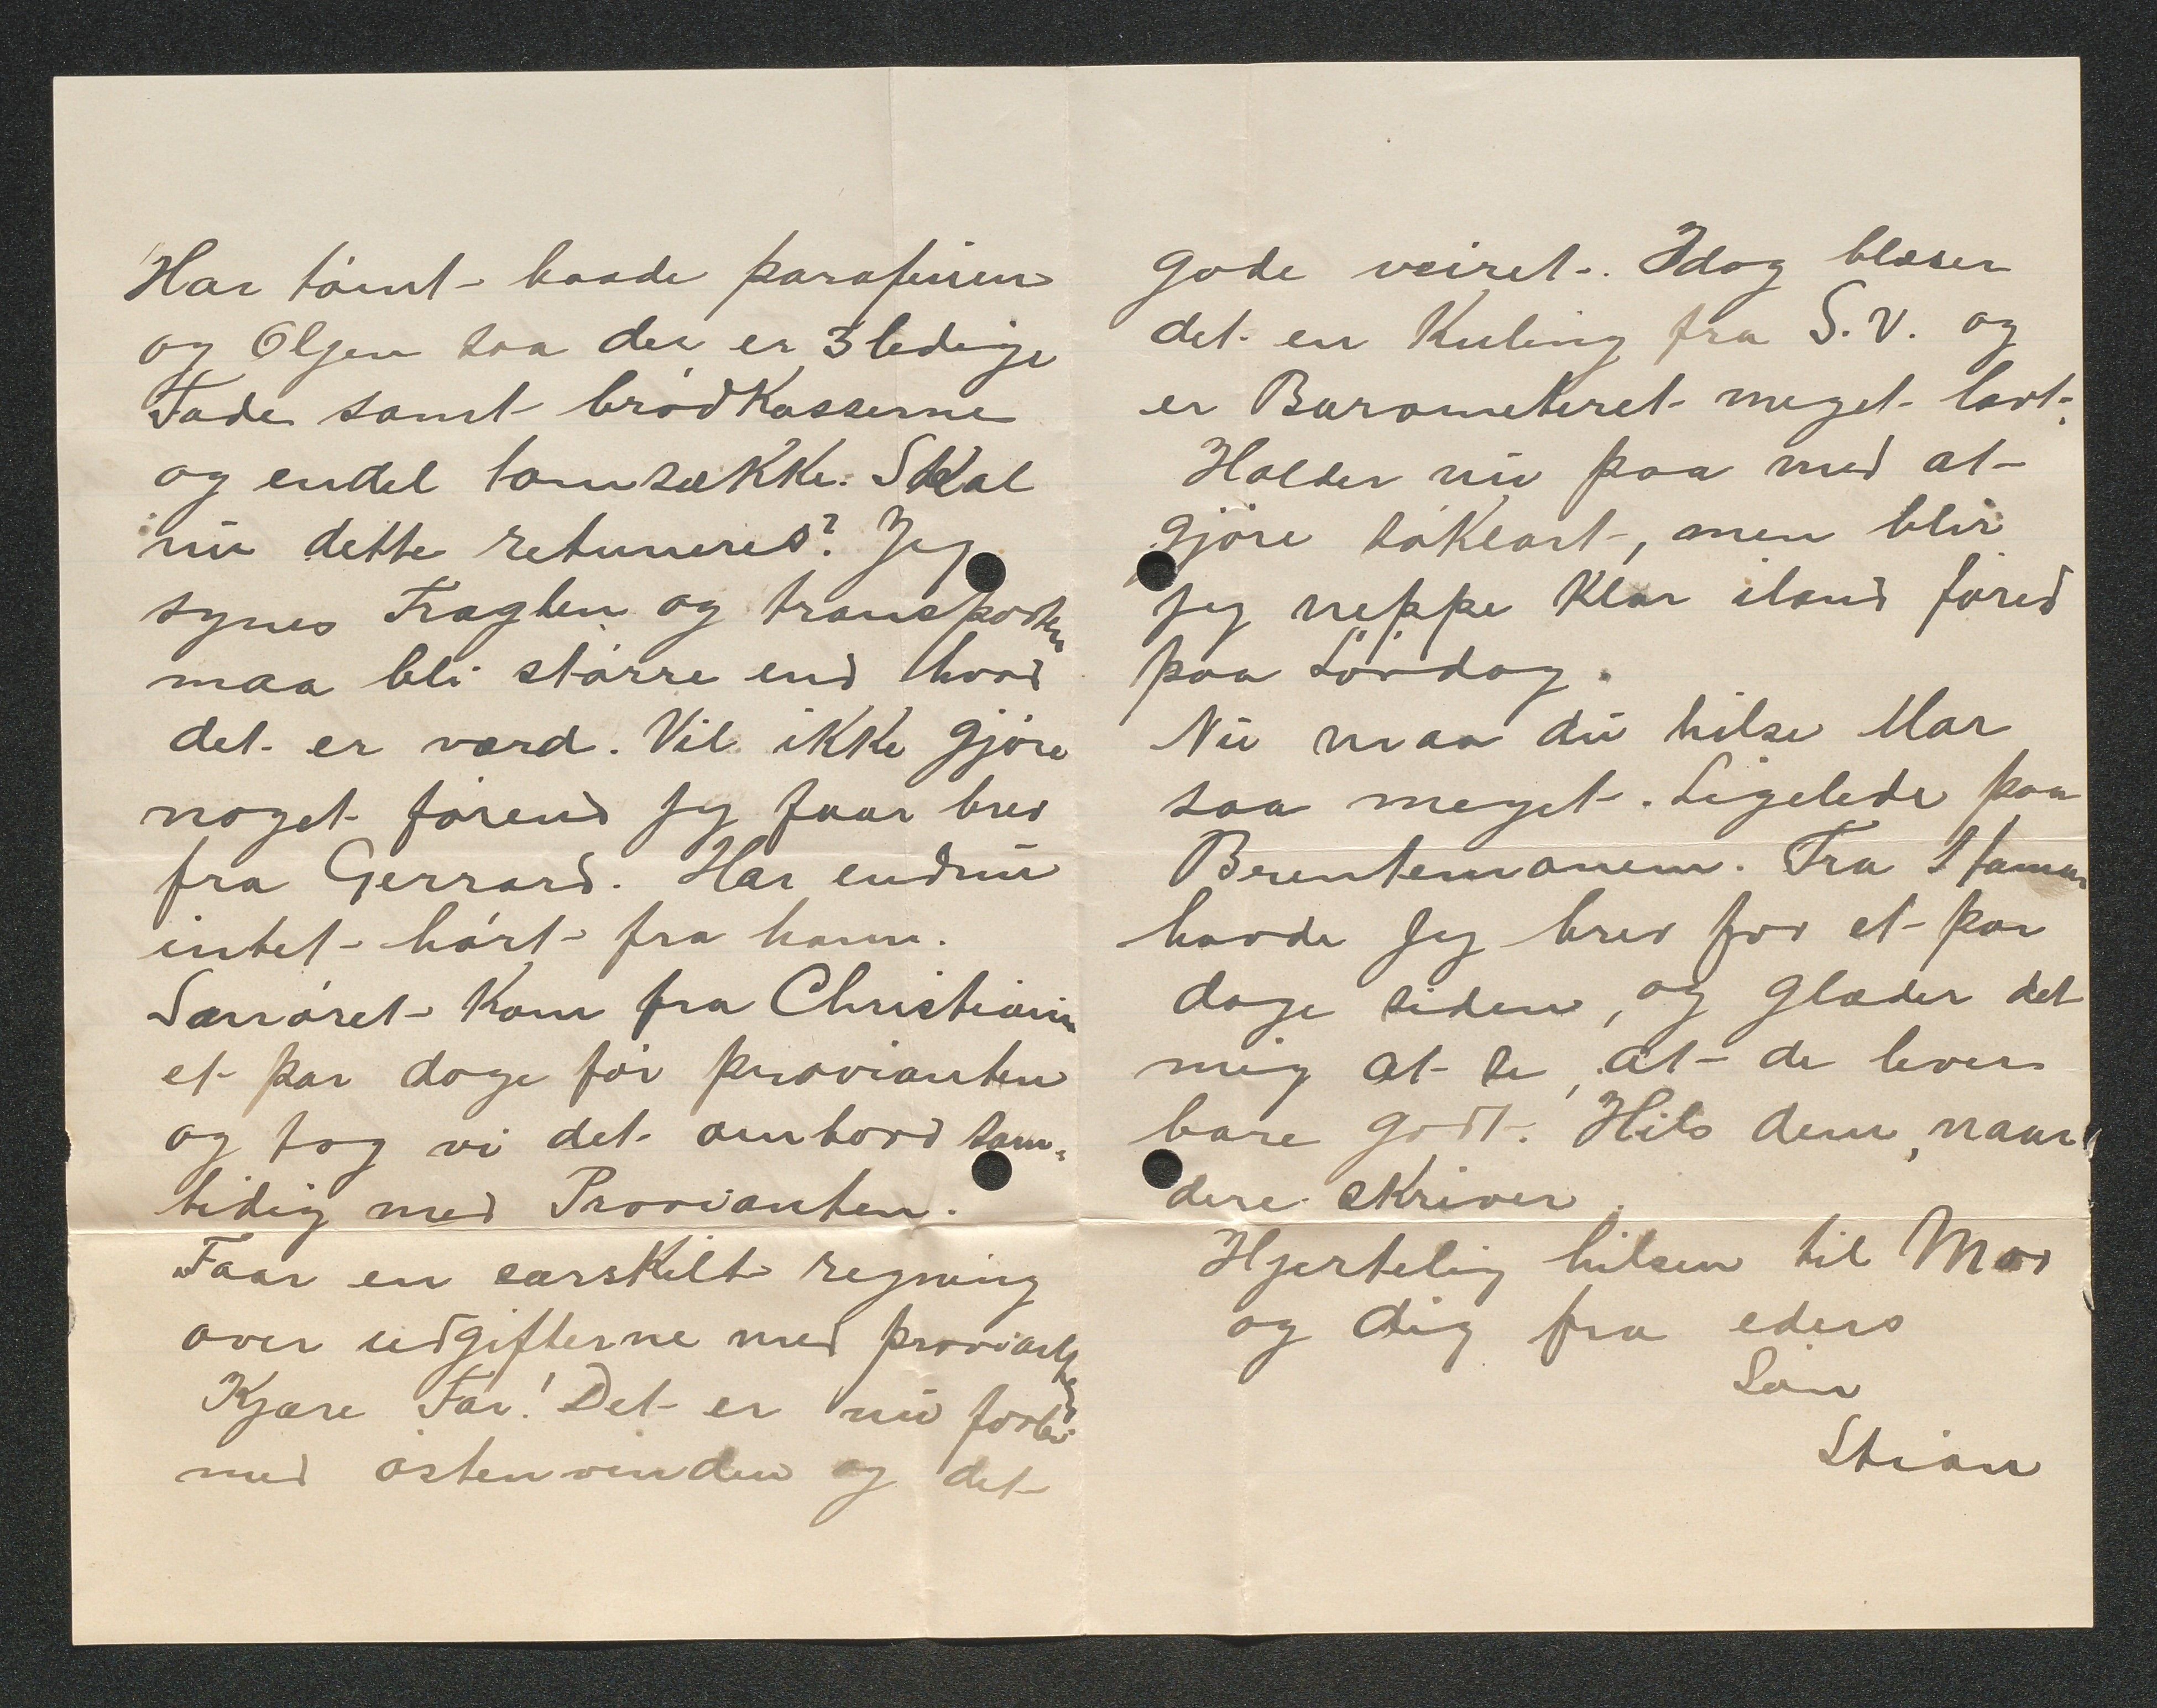 Har tömt baade parafinen
og Oljen saa der er 3 ledige
Fade samt brödkasserne
og endel tomsække. Skal
nu dette retuneres? Jeg
synes Fragten og transporten
maa bli större end hvad
det er værd. Vil ikke gjöre
noget förend jeg faar brev
fra Gerrard. Har endnu
intet hört fra ham.
kom fra Christiania
et par dage för provianten
og tog vi det ombord sam-
tidig med Provianten.
Faar en særskilt regning
over udgifterne med provianten
Kjære Far! Det er nu forbi
med östenvinden og det
gode veiret. Idag blæser
det en Kuling fra S.V. og
er Barometeret meget lavt.
Holder nu paa med at
gjöre söklart, men blir
jeg neppe klar iland föred
paa Lördag.
Nu maa du hilse Mor
saa meget. Ligelede paa
Brentemanen. Fra
havde jeg brev for et par
dage siden, og glæder det
mig at se, at de lever
bare godt. Hils dem, naar
dere skriver.
Hjertelig hilsen til Mor
og dig fra eders
Sön
Stian